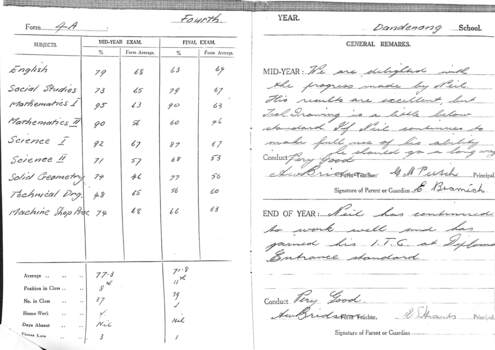 Form 4-A
Fourth YEAR.
SUBJECTS. MID-YEAR EXAM. FINAL EXAM.
% Form Average. % Form Average.
English 79 68 63 64
Social Studies 73 65 79 67
Mathematics I 95 63 90 63
Mathematics II 90 56 60 46
Science I 92 67 87 67
Science II 71 57 68 53
Solid Geometry 79 46 77 50
Technical Drg. 48 65 56 60
Machine Shop Prac 74 68 66 68
Average 77.8 71.8
Position in Class 8th 11th
No. in Class 37 39
Home-Work
Days Absent Nil Nil
Times Late 3 1
Dandenong School.
GENERAL REMARKS.
MID-YEAR: We are delighted with
the progress made by Neil
His results are excellent but
Drawing is a little below
standard If Neil continues to
make full use of his ability
he should go a long way
Conduct Very Good
Form Teacher. Principal
Signature of Parent or Guardian E Bramich
END OF YEAR: Neil has continued
to work well and has
gained his I.T.C. at Diploma
Entrance standard
Conduct Very Good.
Form Teacher. Principal
Signature of Parent or Guardian